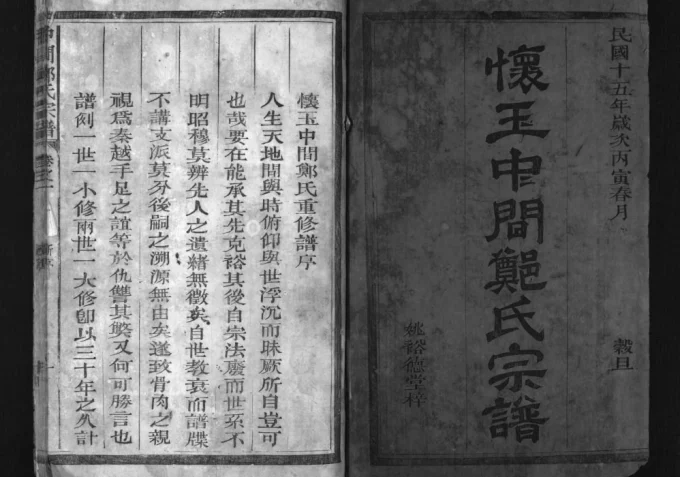 民國十五年歲次丙寅春月 穀旦
懷玉中間鄭氏宗譜
姚裕德堂梓
懷玉中間鄭氏重修譜序
人生天地間與時俯仰與世浮沉而昧厥所自豈可
也哉要在能承其先克裕其後自宗法廢而世系不
明昭穆莫辨先人之遺緒無徵矣自世教衰而譜牒
不講支派莫分後嗣之溯源無由矣遂致骨肉之親
視爲秦越手足之誼等於仇讐其繁又何可勝言也
譜例一世一小修兩世一大修卽以三十年之久計
中間鄭氏宗譜 卷之一